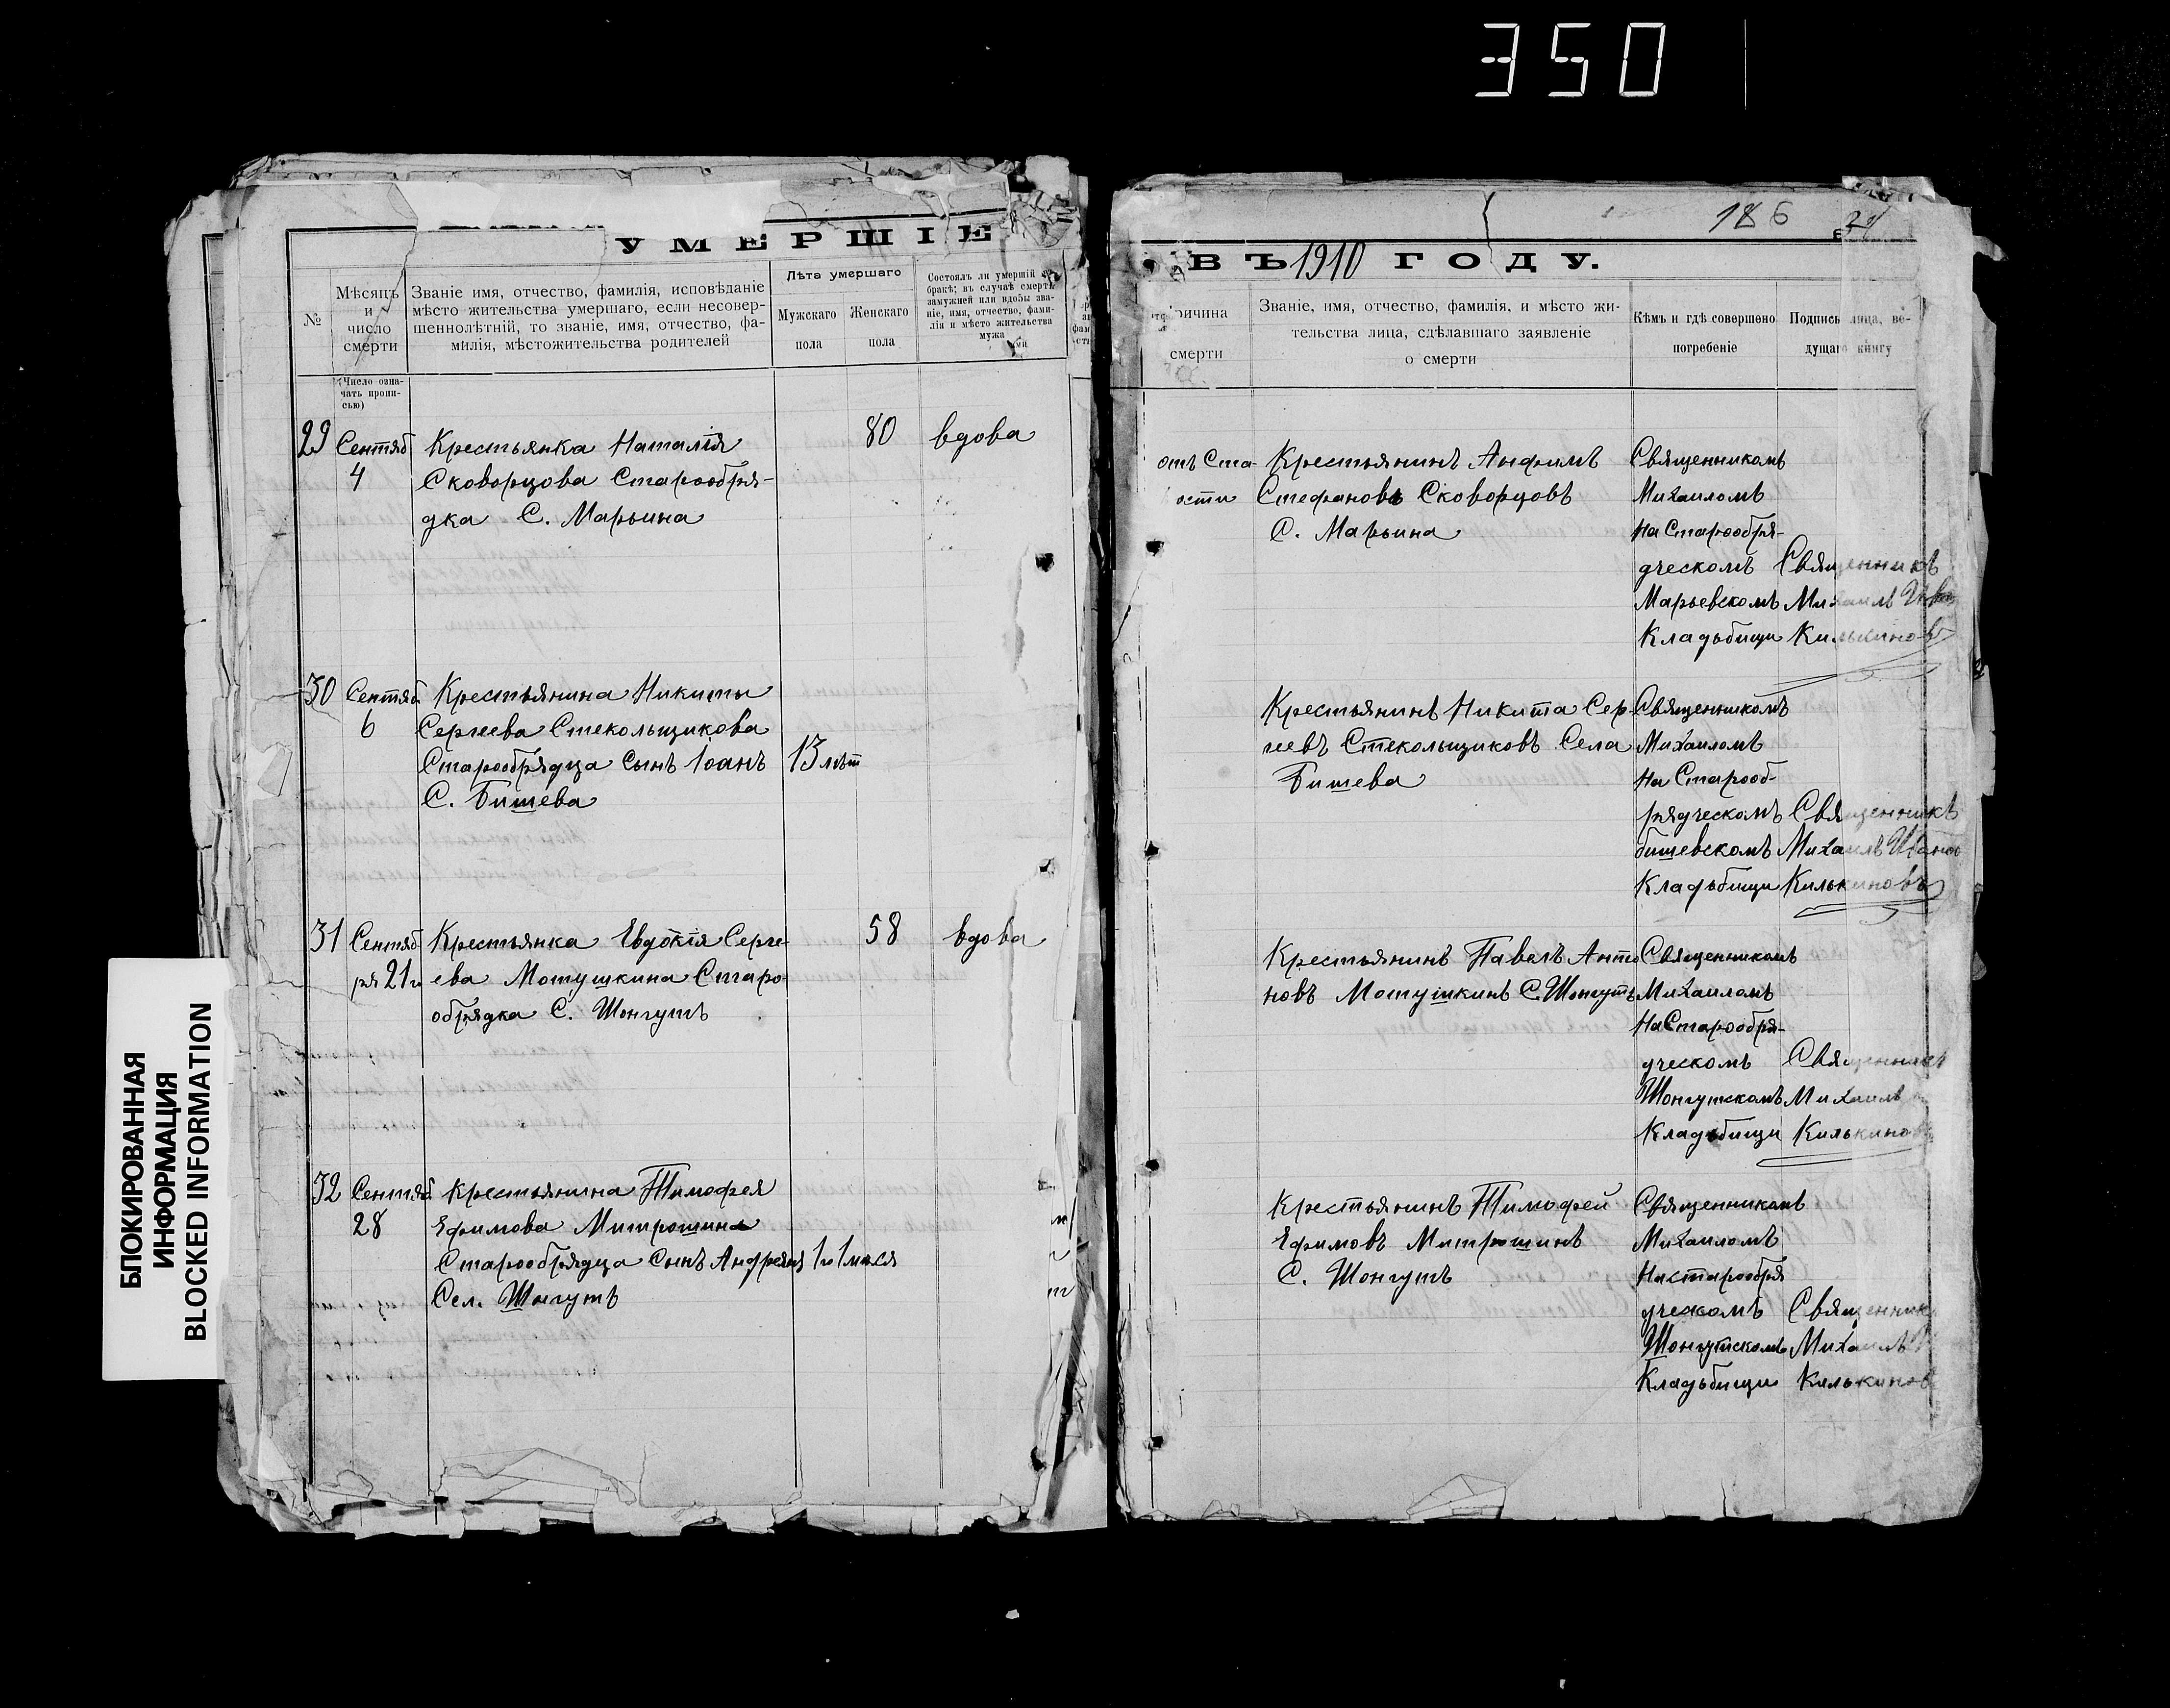 350
186
УМЕРШІЕ
ВЪ 1910 ГОДУ.
№
Мѣсяцъ
и
число
смерти
(Число озна-
чать пропи-
сью)
Званіе имя, отчество, фамилія, исповѣданіе
мѣсто жительства умершаго, если несовер-
шеннолѣтній, то званіе, имя, отчество, фа-
милія, мѣстожительства родителей
Лѣта умершаго
Мужскаго
пола
Женскаго
пола
Состоялъ ли умершій въ
бракѣ; въ случаѣ смерти
замужней или вдовы зва-
ніе, имя, отчество, фами-
лія и мѣсто жительства
мужа
ричина
смерти
Званіе, имя, отчество, фамилія, и мѣсто жи-
тельства лица, сдѣлавшаго заявленіе
о смерти
Кѣмъ и гдѣ совершено
погребеніе
Подпись лица, ве-
дущаго книгу
29
Сентяб
4
Крестьянка Наталія
Сковорцова Старообря-
дка С. Марьина
80
вдова
отъ Ста-
ости
Крестьянинъ Анфимъ
Стефановъ Сковорцовъ
С. Марьина
Священникомъ
Михаиломъ
на Старообря-
дческомъ
Марьевскомъ
Кладьбищи
Священникъ
Михаилъ
Килькиновъ
30
Сентяб
6
Крестьянина Никиты
Сергеева Стекольщикова
Старообрядца сынъ Іоанъ
С. Бишева
13 лѣт
Крестьянинъ Никита Сер-
геевъ Стекольщиковъ Села
Бишева
Священникомъ
Михаиломъ
на Старооб-
рядческомъ
бишевскомъ
Кладьбищи
Священникъ
Михаилъ Иванов
Килькиновъ
31
Сентяб
ря 21го
Крестьянка Евдокія Серге-
ева Мотушкина Старо-
обрядка С. Шонгутъ
58
вдова
Крестьянинъ Павелъ Анто
новъ Мотушкинъ С. Шонгутъ
Священникомъ
Михаиломъ
на Старообря-
дческомъ
Шонгутскомъ
Кладьбищи
Священникъ
Михаилъ
Килькиновъ
32
Сентяб
28
Крестьянина Тимофея
Ефимова Митрошина
Старообрядца сынъ Андреян
Сел. Шонгутъ
1 го 1 мися
Крестьянинъ Тимофей
Ефимовъ Митрошинъ
С. Шонгутъ
Священникомъ
Михаиломъ
на старообря
дческомъ
Шонгутскомъ
Кладьбищи
Священник
Михаилъ
Килькинов
БЛОКИРОВАННАЯ
ИНФОРМАЦИЯ
BLOCKED INFORMATION